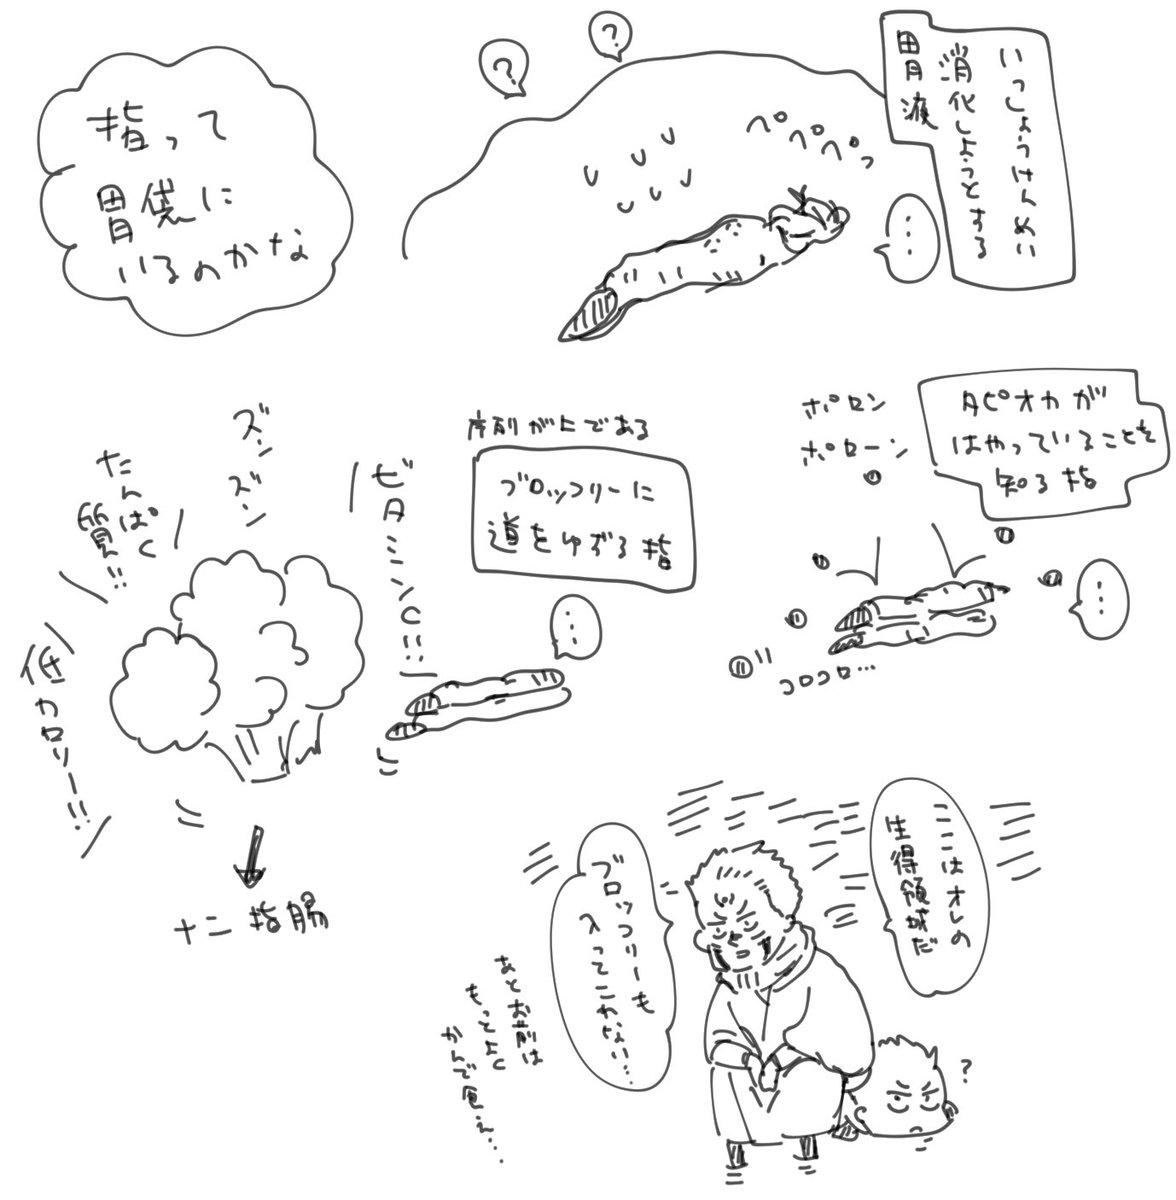 指って
胃袋に
いるのかな
?
?
いっしょうけんめい
消化しようとする
胃液
ペペペっ
…
タピオカが
はやっていることを
知る指
ポロン
ポローン
…
コロコロ…
序列が上である
ブロッコリーに
道をゆずる指
…
ビタミンC!!
ズン
ズン
たんぱく
質!!
低カロリー!!
十二指腸
ここはオレの
生得領域だ
ブロッコリーも
入ってこれない…
あとお前は
もっとよく
かんで食え…
?